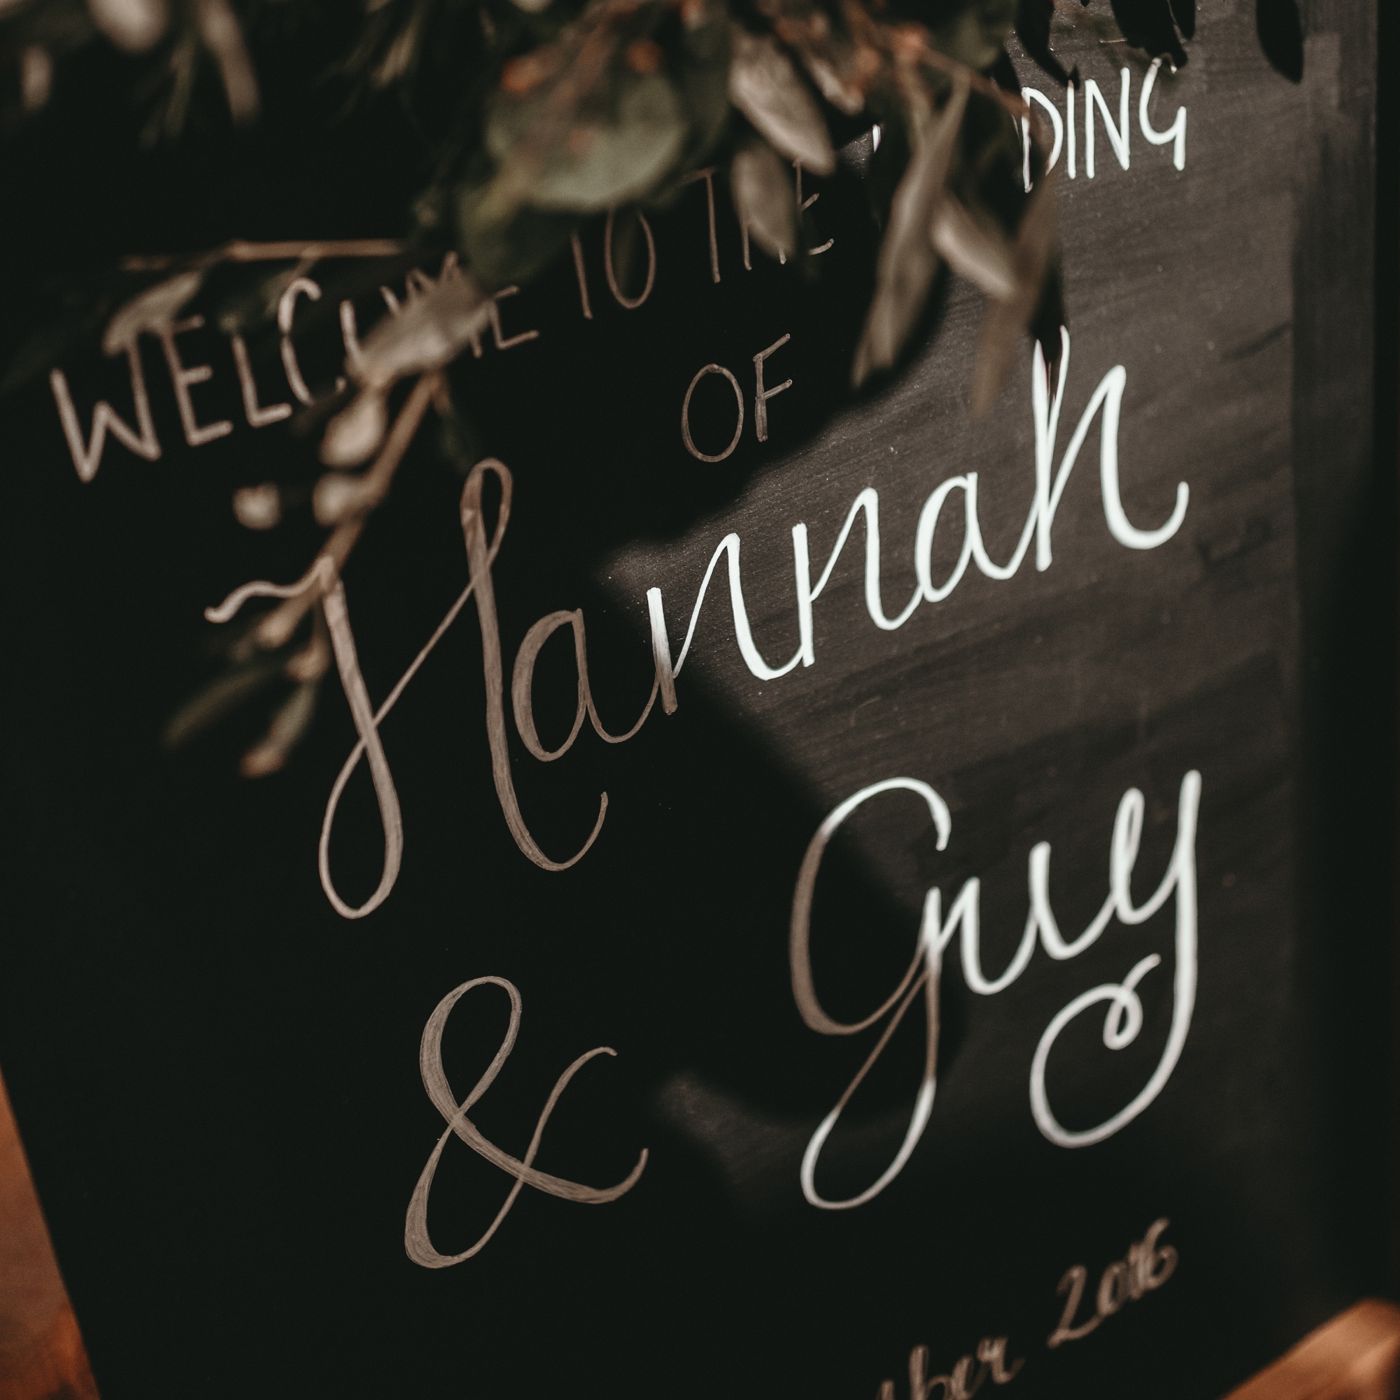 WELCOME TO THE
DING
OF
Hannah
&
Guy
ber 2016